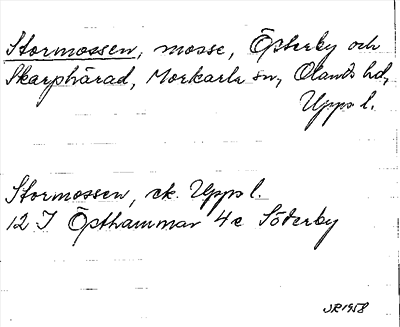 Stormossen, mosse, Österby och
Skarphärad, Morkarla sn, Olands hd,
Upps l.
Stormossen, ek. Upps l.
12 I Östhammar 4c Söderby
JR1958